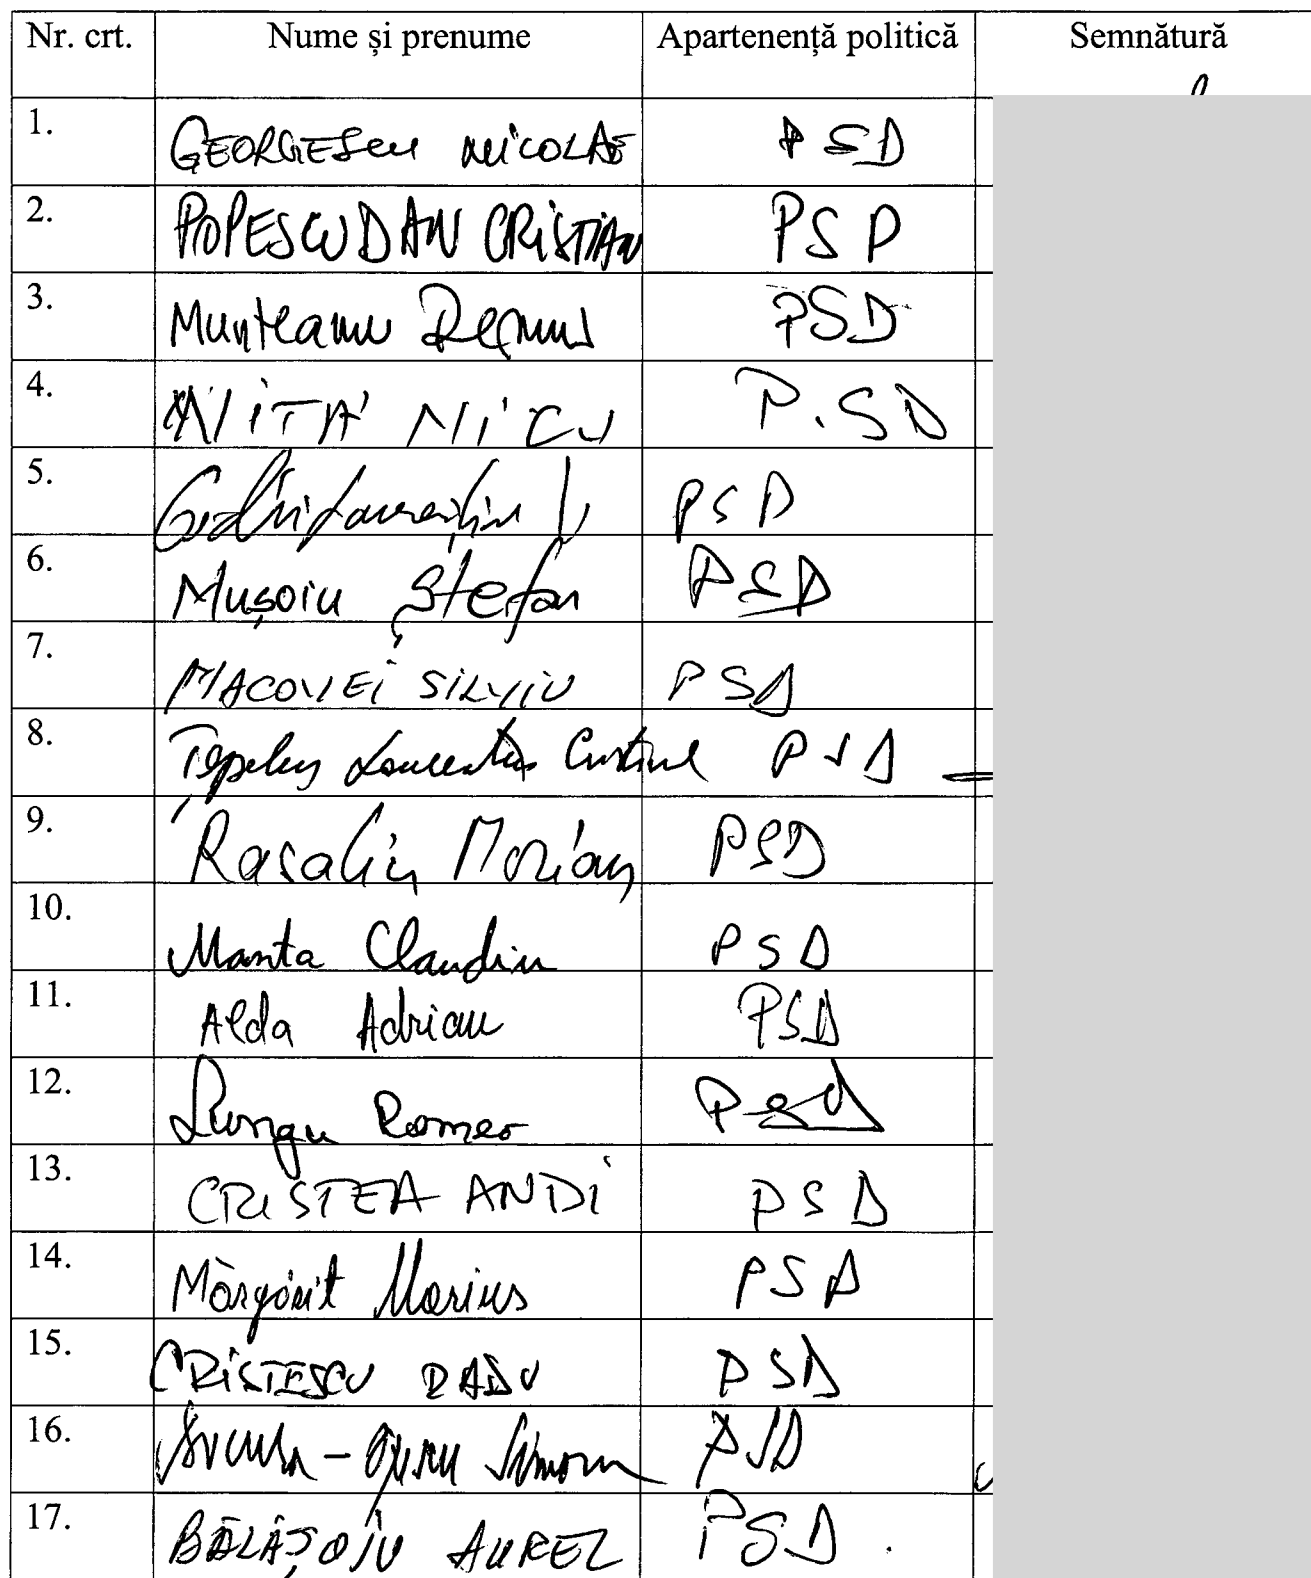 Nr. crt. Nume și prenume Apartenență politică Semnătură
1. GEORGESCU NICOLAE PSD
2. POPESCU DAN CRISTIAN PSD
3. Munteanu Remus PSD
4. NIȚĂ NICU P.SD
5. PSD
6. Mușoiu Ștefan PSD
7. MACOVEI SILVIU PSD
8. Țepeluș Laurențiu PSD
9. Rasaliu Marian PSD
10. Manta Claudiu PSD
11. Alda Adrian PSD
12. Lungu Romeo PSD
13. CRISTEA ANDI PSD
14. Mărgărit Marius PSD
15. CRISTESCU RADU PSD
16. PSD
17. BĂLĂȘOIU AUREL PSD